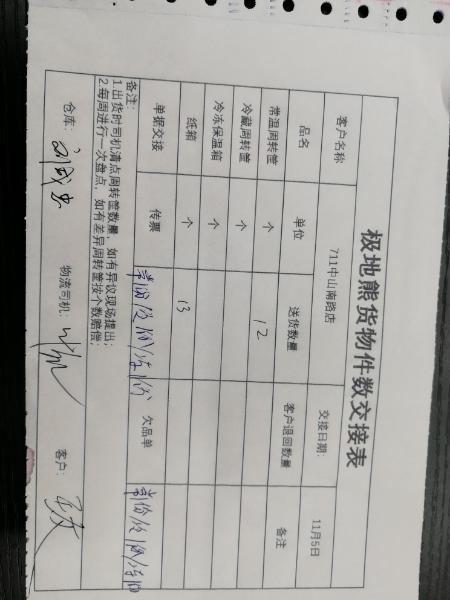 极地熊货物件数交接表
客户名称 711中山南路店 交接日期: 11月5日
品名 单位 送货数量 客户退回数量 备注
常温周转筐 个 12
冷藏周转筐 个
冷冻保温箱 个
纸箱 个 13
单据交接 传票 欠品单
备注:
1.出货时司机清点周转筐数量，如有异议现场提出;
2.每周进行一次盘点，如有差异周转筐按个数赔偿;
仓库: 物流司机: 客户: